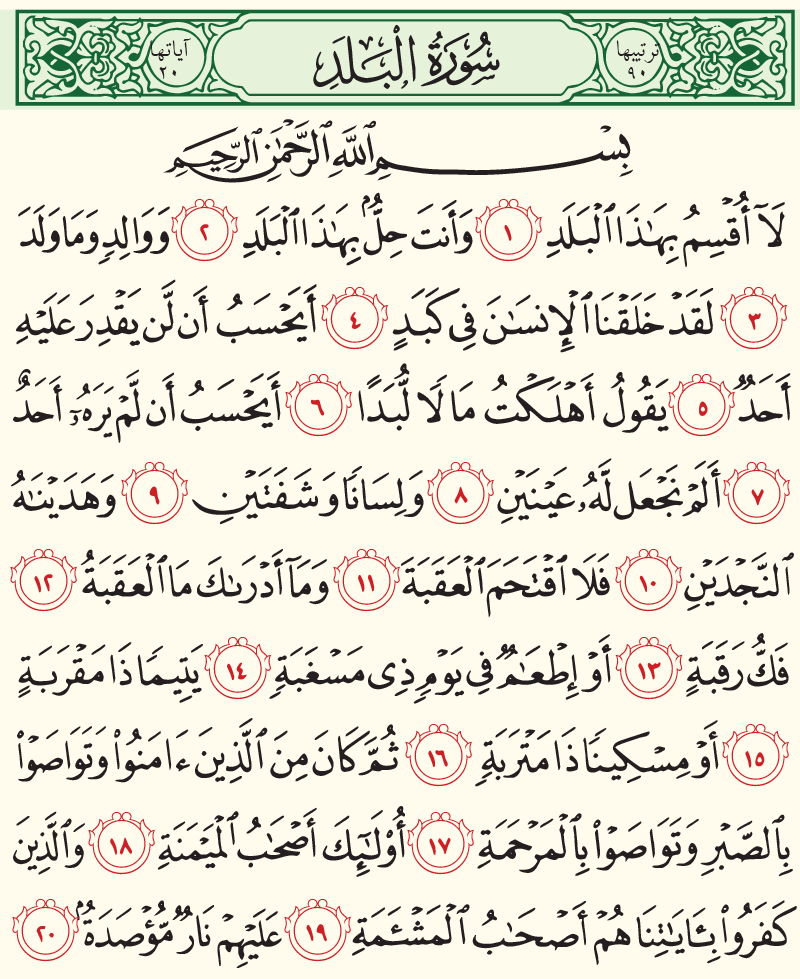 ترتيبها ٩٠ سُورَةُ الْبَلَدِ آياتها ٢٠
بِسْمِ ٱللَّهِ ٱلرَّحْمَٰنِ ٱلرَّحِيمِ
لَآ أُقْسِمُ بِهَٰذَا ٱلْبَلَدِ ١ وَأَنتَ حِلٌّۢ بِهَٰذَا ٱلْبَلَدِ ٢ وَوَالِدٍ وَمَا وَلَدَ
٣ لَقَدْ خَلَقْنَا ٱلْإِنسَٰنَ فِى كَبَدٍ ٤ أَيَحْسَبُ أَن لَّن يَقْدِرَ عَلَيْهِ
أَحَدٌ ٥ يَقُولُ أَهْلَكْتُ مَالًا لُّبَدًا ٦ أَيَحْسَبُ أَن لَّمْ يَرَهُۥٓ أَحَدٌ
٧ أَلَمْ نَجْعَل لَّهُۥ عَيْنَيْنِ ٨ وَلِسَانًا وَشَفَتَيْنِ ٩ وَهَدَيْنَٰهُ
ٱلنَّجْدَيْنِ ١٠ فَلَا ٱقْتَحَمَ ٱلْعَقَبَةَ ١١ وَمَآ أَدْرَىٰكَ مَا ٱلْعَقَبَةُ ١٢
فَكُّ رَقَبَةٍ ١٣ أَوْ إِطْعَٰمٌ فِى يَوْمٍ ذِى مَسْغَبَةٍ ١٤ يَتِيمًا ذَا مَقْرَبَةٍ
١٥ أَوْ مِسْكِينًا ذَا مَتْرَبَةٍ ١٦ ثُمَّ كَانَ مِنَ ٱلَّذِينَ ءَامَنُوا۟ وَتَوَاصَوْا۟
بِٱلصَّبْرِ وَتَوَاصَوْا۟ بِٱلْمَرْحَمَةِ ١٧ أُو۟لَٰٓئِكَ أَصْحَٰبُ ٱلْمَيْمَنَةِ ١٨ وَٱلَّذِينَ
كَفَرُوا۟ بِـَٔايَٰتِنَا هُمْ أَصْحَٰبُ ٱلْمَشْـَٔمَةِ ١٩ عَلَيْهِمْ نَارٌ مُّؤْصَدَةٌۢ ٢٠